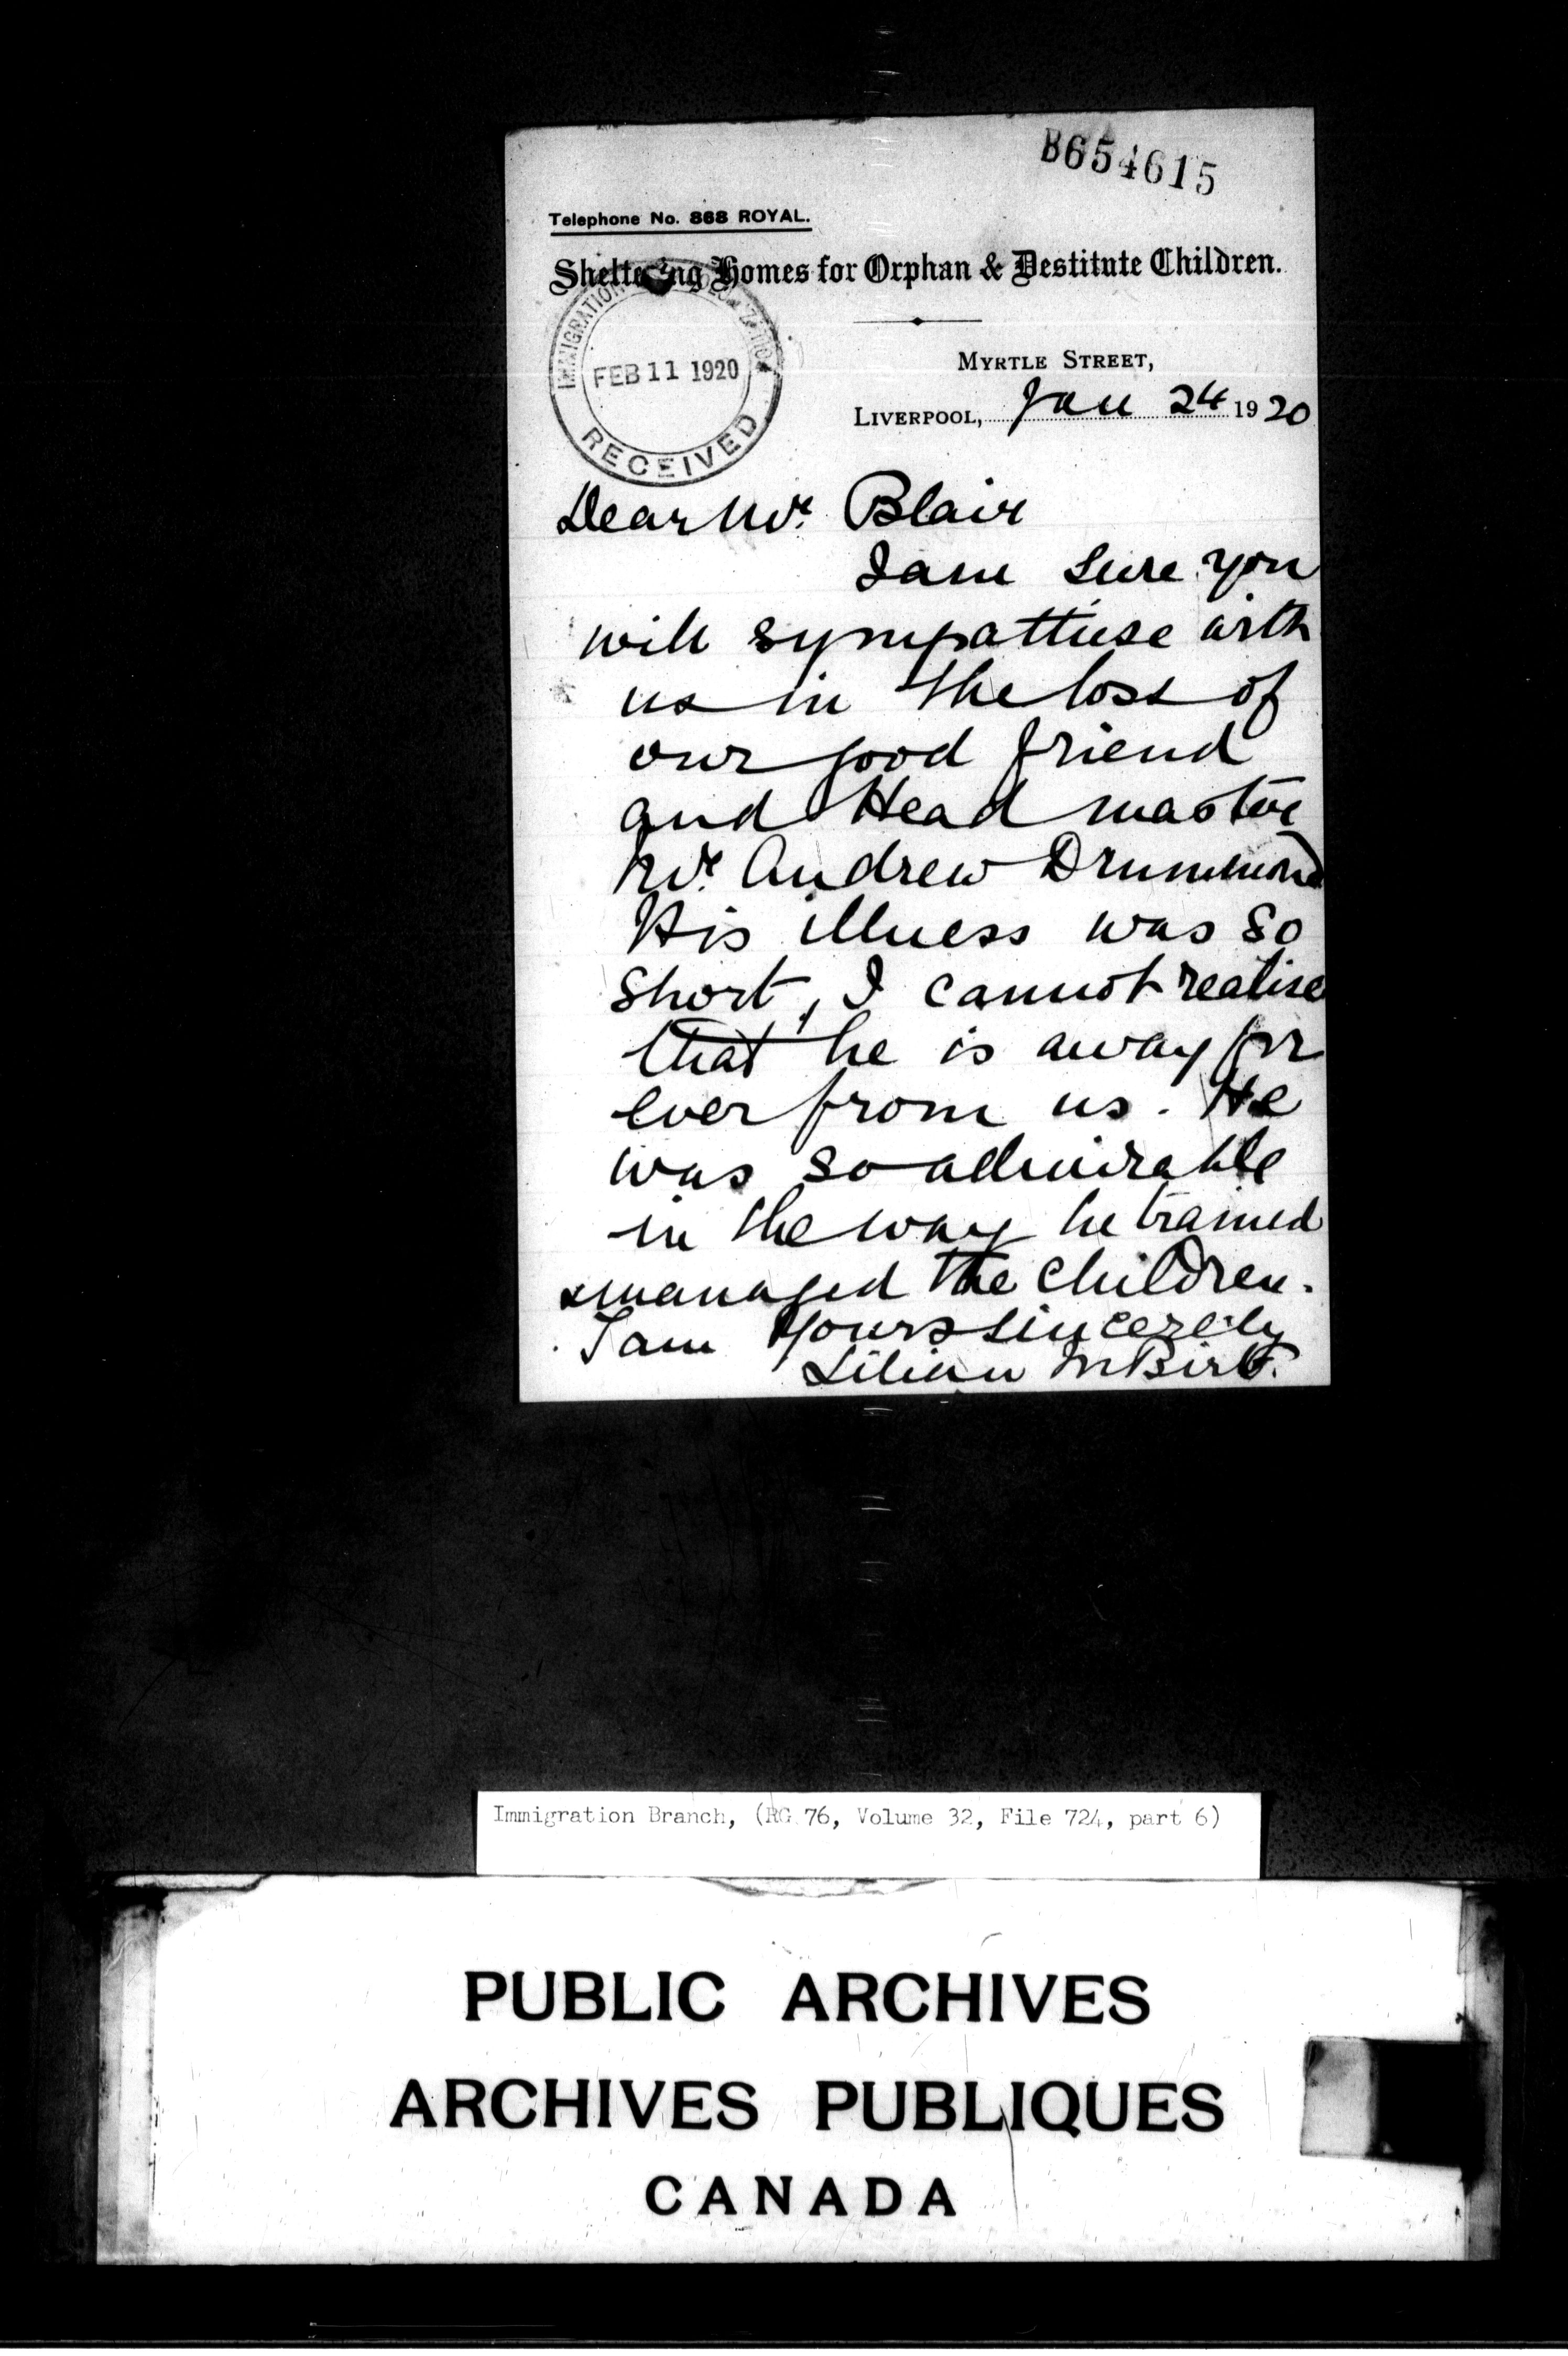 B654615
Telephone No. 868 ROYAL.
Sheltering Homes for Orphan & Destitute Children.
IMMIGRATION
FEB 11 1920
RECEIVED
MYRTLE STREET,
LIVERPOOL, Jan 24 1920
Dear Mr. Blair
I am sure you
will sympathise with
us in the loss of
our good friend
and Head master
Mr. Andrew Drummond
His illness was so
short, I cannot realise
that he is away for
ever from us. He
was so admirable
in the way he trained
& managed the children.
I am Yours sincerely
Lilian M Birt.
Immigration Branch, (RG 76, Volume 32, File 724, part 6)
PUBLIC ARCHIVES
ARCHIVES PUBLIQUES
CANADA